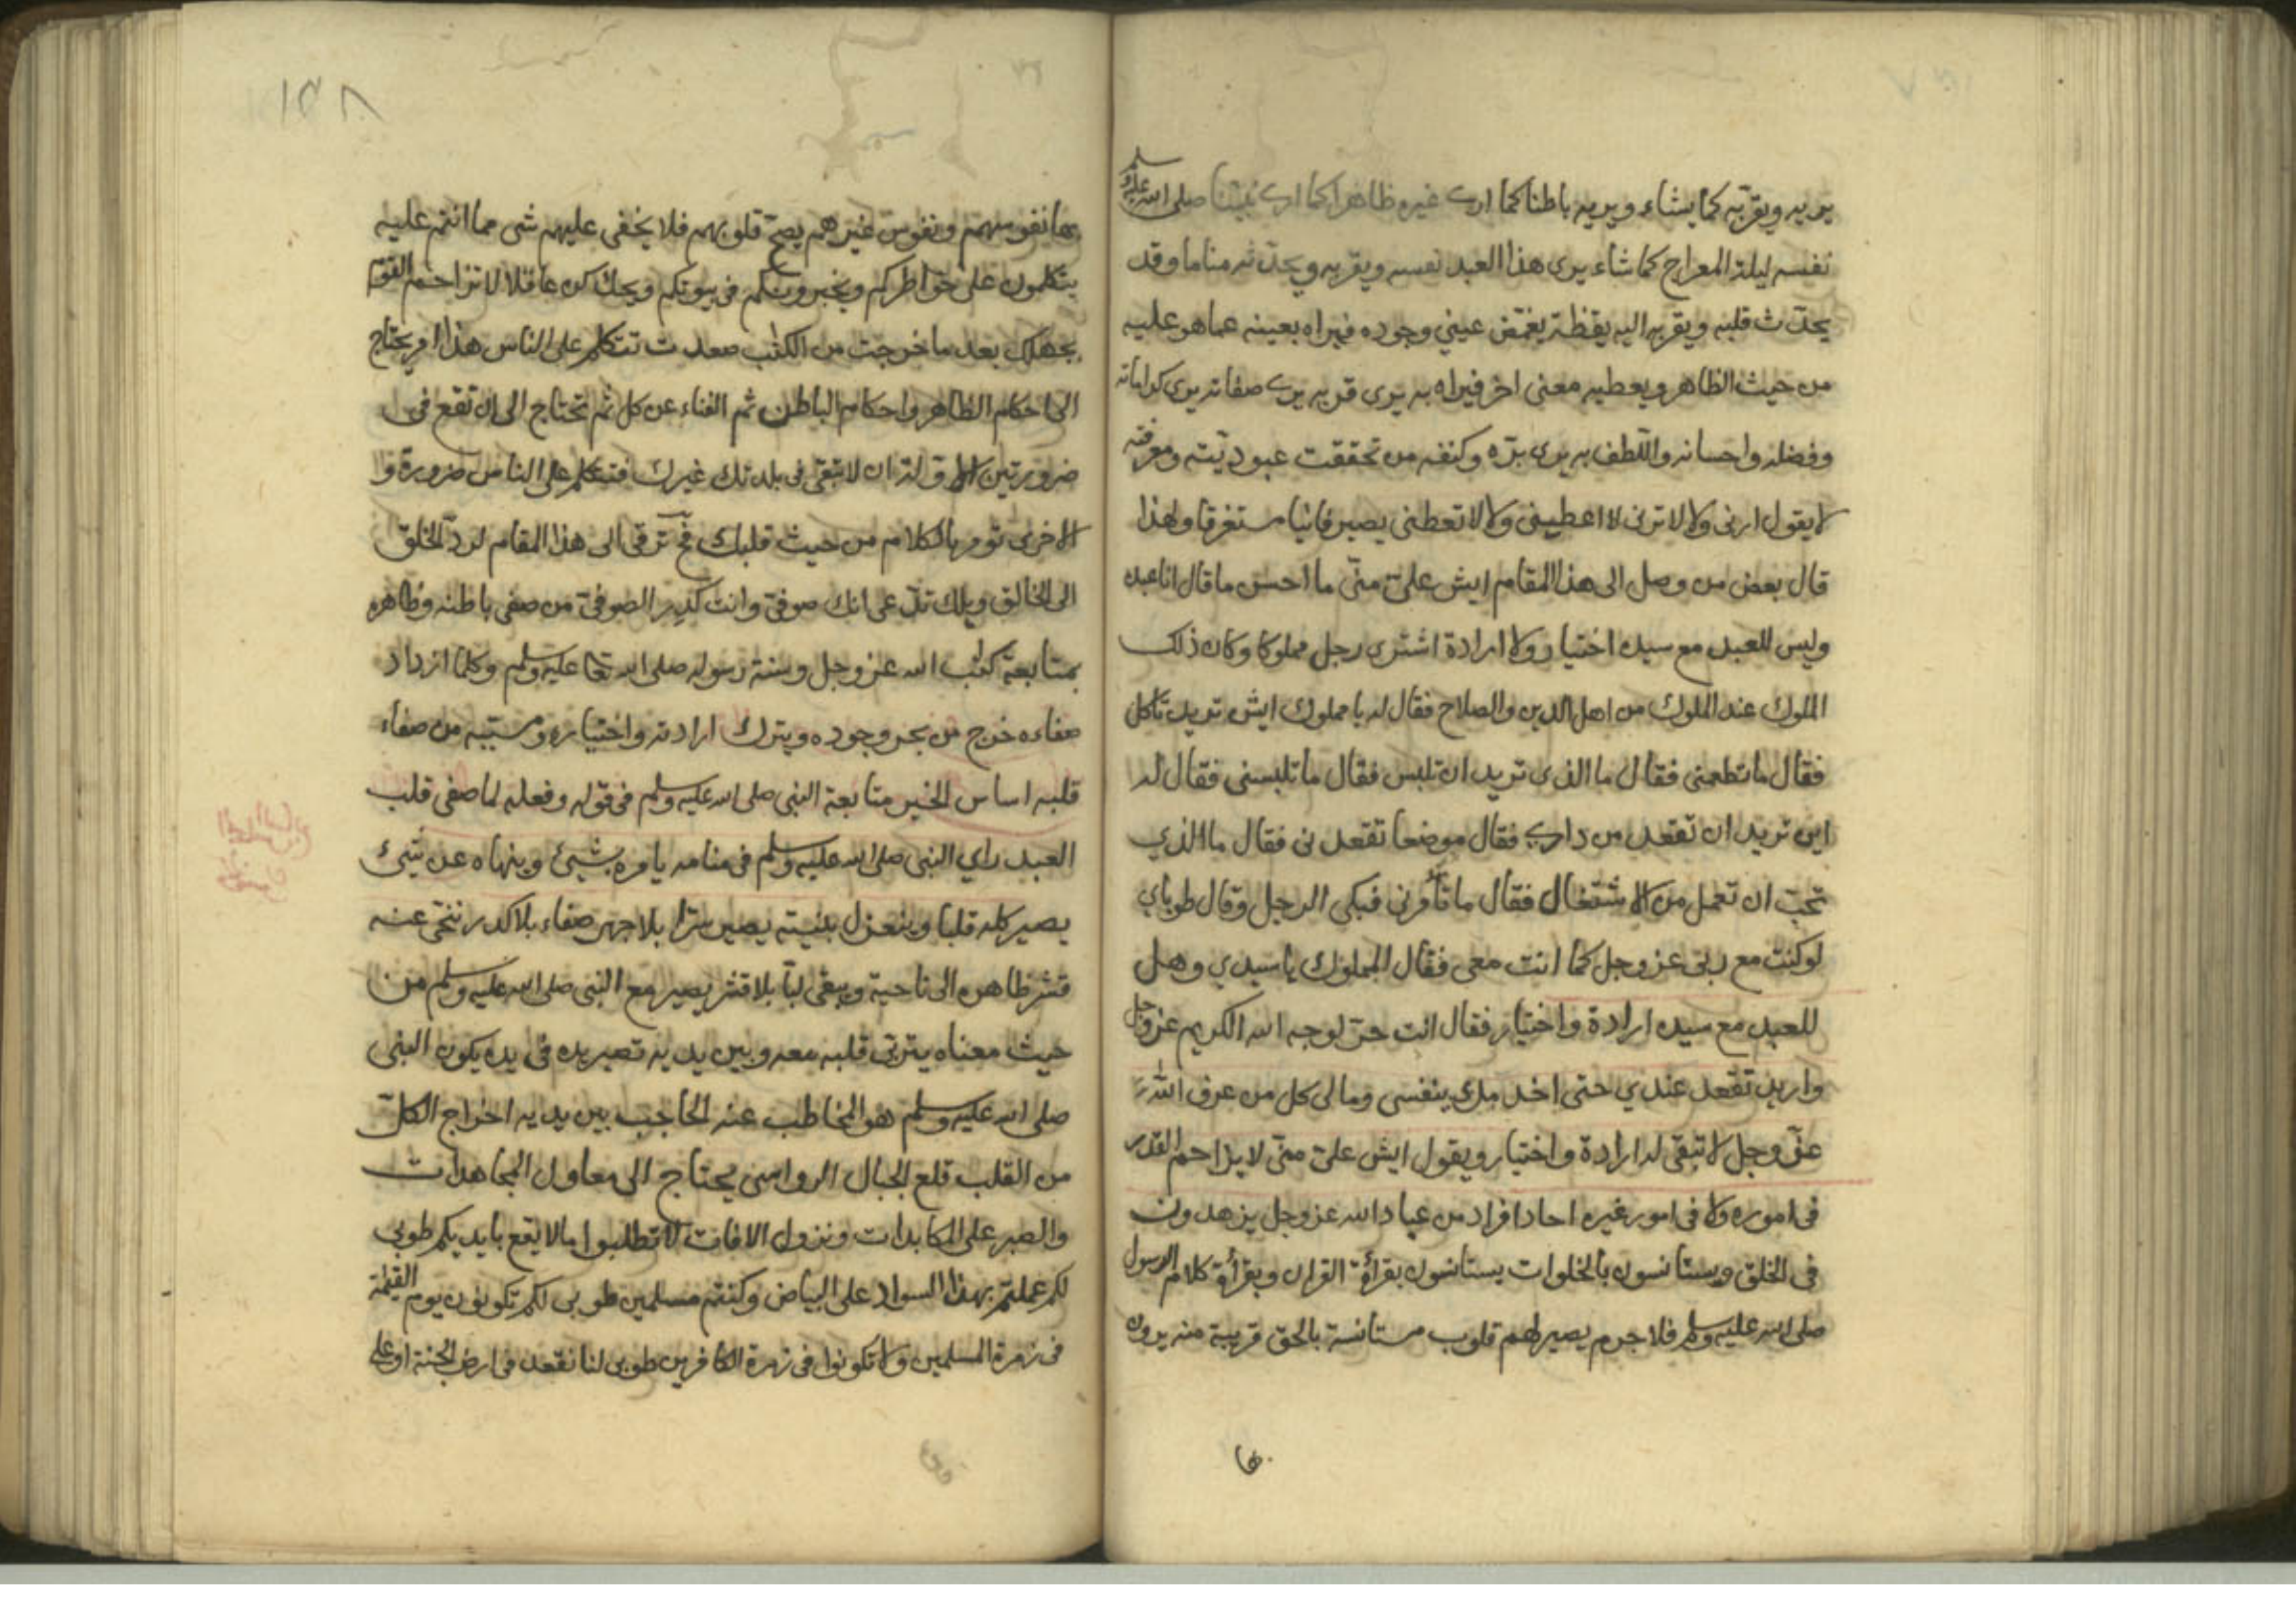 يريه ويقربه كما يشاء ويريه باطنا كما ارى غيره ظاهرا كما ارى نبينا صلى الله عليه وسلم
نفسه ليلة المعراج كما شاء يرى هذا العبد نفسه ويقربه ويحدثه مناما وقد
يحدث قلبه ويقربه اليه يقظة يغمض عيني وجوده فيراه بعينه عما هو عليه
من حيث الظاهر ويعطيه معنى اخر فيراه به يرى قربه يرى صفاته يرى كراماته
وفضله واحسانه واللطف به يرى بره وكنفه من تحققت عبوديته ومعرفته
لا يقول ارنى ولا لا ترنى لا اعطينى ولا لا تعطنى يصير فانيا مستغرقا ولهذا
قال بعض من وصل الى هذا المقام ايش علىّ منّى ما احسن ما قال انا عبده
وليس للعبد مع سيده اختيار ولا ارادة اشترى رجل مملوكا وكان ذلك
الملوك عند الملوك من اهل الدين والصلاح فقال له يا مملوك ايش تريد تاكل
فقال ما تطعمنى فقال ما الذى تريد ان تلبس فقال ما تلبسنى فقال له
اين تريد ان تقعد من دارى فقال موضعا تقعدنى فقال ما الذي
تحب ان تعمل من الاشتغال فقال ما تأمرنى فبكى الرجل وقال طوباي
لو كنت مع ربى عز وجل كما انت معى فقال المملوك يا سيدي وهل
للعبد مع سيده ارادة واختيار فقال انت حرّ لوجه الله الكريم عز وجل
واريد تقعد عندي حتى اخدمك بنفسى ومالى كل من عرف الله
عزّ وجل لا تبقى له ارادة واختيار ويقول ايش علىّ منّى لا يزاحم القدر
فى اموره ولا فى امور غيره احاد افراد من عباد الله عز وجل يزهدون
فى الخلق ويستانسون بالخلوات يستانسون بقرأة القران وبقرأة كلام الرسول
صلى الله عليه وسلم فلا جرم يصير لهم قلوب مستانسة بالحق قريبة منه يرون
بها
١٥٨
بها نفوسهم ونفوس غيرهم يصحّ قلوبهم فلا يخفى عليهم شى مما انتم عليه
يتكلمون على خواطركم ويخبرونكم فى بيوتكم ويحك كن عاقلا لا تزاحم القوم
بجهلك بعد ما خرجت من الكتب صعدت تتكلم على الناس هذا امر يحتاج
الى احكام الظاهر واحكام الباطن ثم الفناء عن كل ثم تحتاج الى ان تقع فى
ضرورتين الاولة ان لا تبقى فى بلدتك غيرك فتتكلم على الناس ضرورة و
الاخرى تومر بالكلام من حيث قلبك فح ترقى الى هذا المقام لردّ الخلق
الى الخالق ويلك تدّعى انك صوفىّ وانت كدر الصوفىّ من صفى باطنه وظاهره
بمتابعة كتب الله عز وجل وسنة رسوله صلى الله تعا عليه وسلم وكلما ازداد
صفاءه خرج من بحر وجوده ويترك ارادته واختياره ومشيته من صفاء
قلبه اساس الخير متابعة النبى صلى الله عليه وسلم فى قوله وفعله لما صفى قلب
العبد راي النبى صلى الله عليه وسلم فى منامه يامره بشيئ وينهاه عن شيئ
يصير كله قلبا وينعزل بنيته يصير سرّا بلا جهر صفاء بلا كدر تنحى عنه
قشر ظاهره الى ناحية ويبقى لبّا بلا قشر يصير مع النبى صلى الله عليه وسلم من
حيث معناه يتربى قلبه معه وبين يديه تصير يده فى يده يكون النبى
صلى الله عليه وسلم هو المخاطب عنه الحاجب بين يديه اخراج الكلّ
من القلب قلع الجبال الرواسى يحتاج الى معاول المجاهدات
والصبر على المكابدات ونزول الافات لا تطلبوا ما لا يقع بايديكم طوبى
لكم عملتم بهذا السواد على البياض وكنتم مسلمين طوبى لكم تكونون يوم القيمة
فى زمرة المسلمين ولا تكونوا فى زمرة الكافرين طوبى لنا نقعد فى ارض الجنة او على